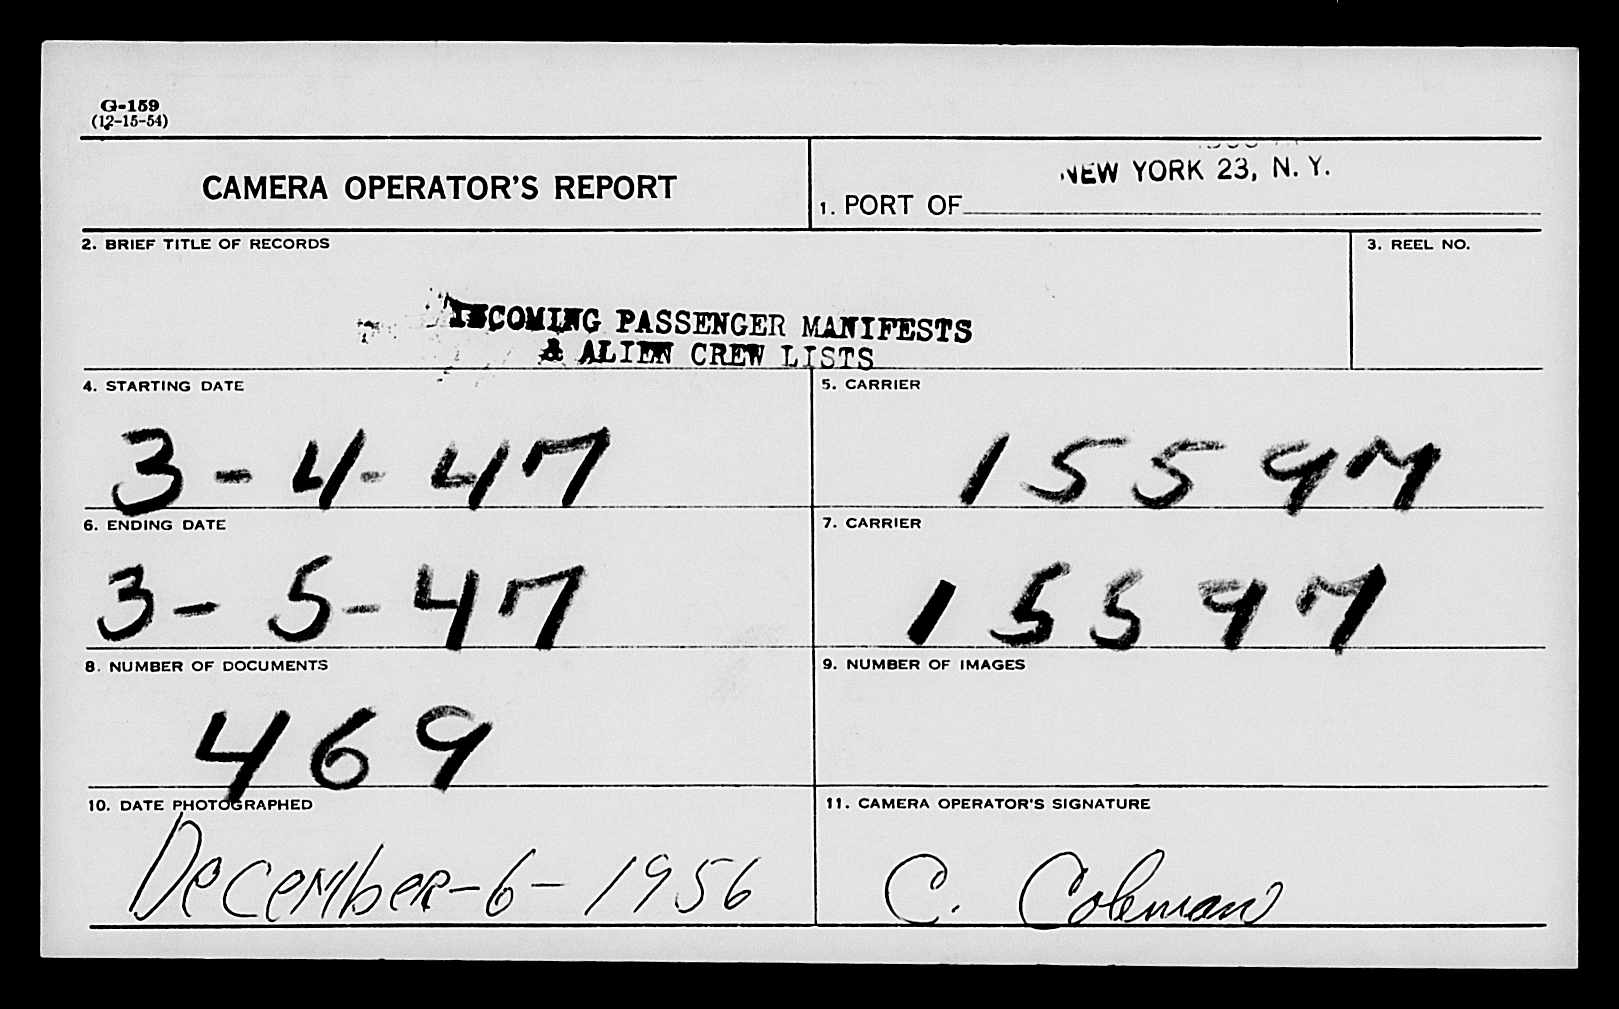 G-159
(12-15-54)
CAMERA OPERATOR'S REPORT
1. PORT OF NEW YORK 23, N. Y.
2. BRIEF TITLE OF RECORDS
3. REEL NO.
INCOMING PASSENGER MANIFESTS
& ALIEN CREW LISTS
4. STARTING DATE
5. CARRIER
3-4-47
15597
6. ENDING DATE
7. CARRIER
3-5-47
15597
8. NUMBER OF DOCUMENTS
9. NUMBER OF IMAGES
469
10. DATE PHOTOGRAPHED
11. CAMERA OPERATOR'S SIGNATURE
December-6-1956
C. Coleman